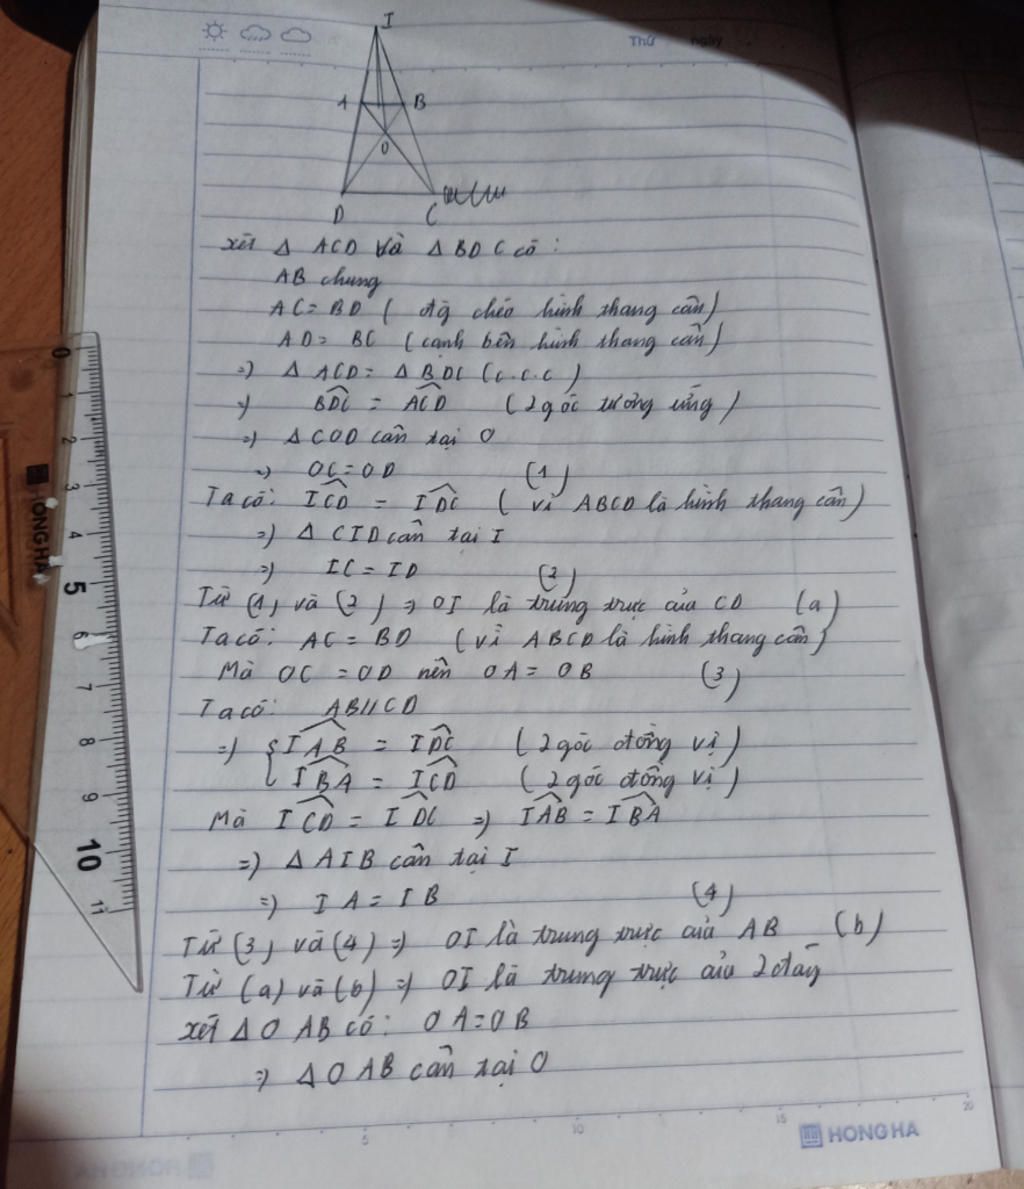 Thứ ngày
I
A B
O
D C
xét Δ ACD và Δ BDC có :
AB chung
AC = BD ( đg chéo hình thang cân)
AD = BC (cạnh bên hình thang cân)
=) Δ ACD = Δ BDC (c.c.c)
=) BDC = ACD (2 góc tương ứng)
=) Δ COD cân tại O
=) OC = OD (1)
Ta có: ICD = IDC ( vì ABCD là hình thang cân)
=) Δ CID cân tại I
=) IC = ID (2)
Từ (1) và (2) =) OI là trung trực của CD (a)
Ta có: AC = BD (vì ABCD là hình thang cân)
Mà OC = OD nên OA = OB (3)
Ta có: AB//CD
=) { IAB = IDC (2 góc đồng vị)
IBA = ICD (2 góc đồng vị)
Mà ICD = IDC =) IAB = IBA
=) Δ AIB cân tại I
=) IA = IB (4)
Từ (3) và (4) =) OI là trung trực của AB (b)
Từ (a) và (b) =) OI là trung trực của 2 đáy
xét Δ OAB có: OA = OB
=) Δ OAB cân tại O
5 10 15 20
HONG HA
0 1 2 3 4 5 6 7 8 9 10 11
HONG HA